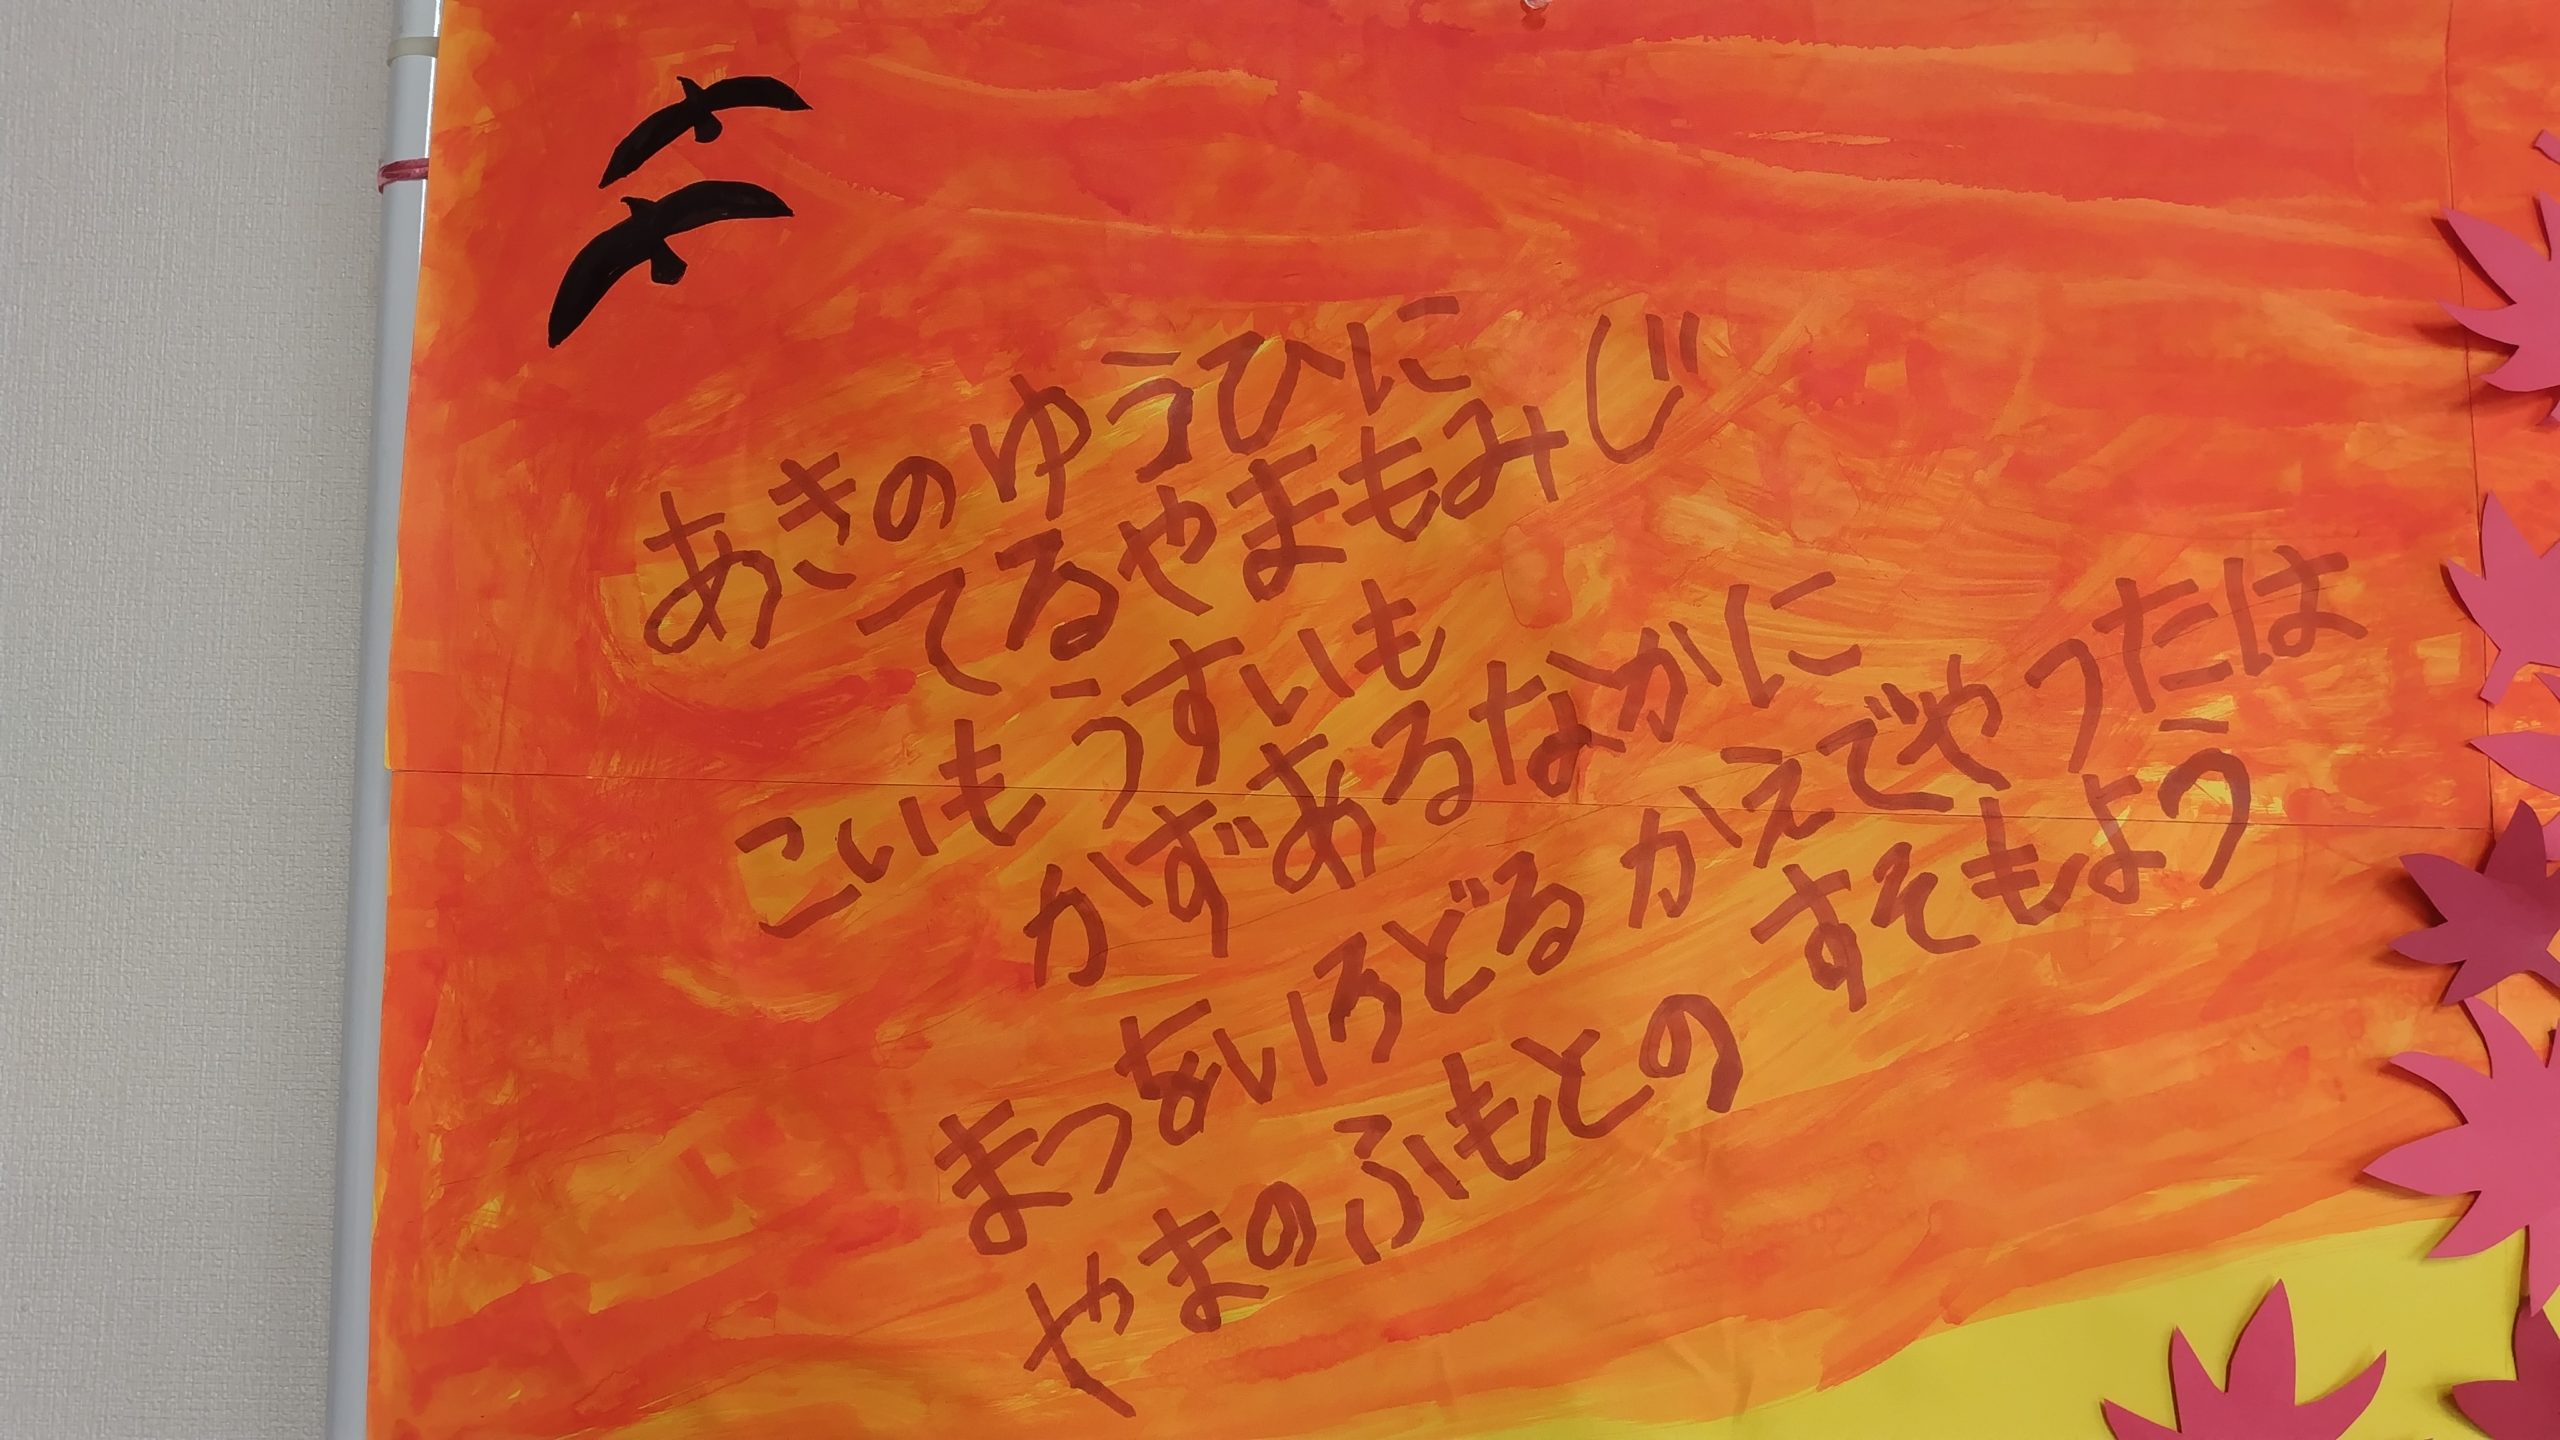 あきのゆうひに
てるやまもみじ
こいもうすいも
かずあるなかに
まつをいろどる かえでやつたは
やまのふもとの すそもよう